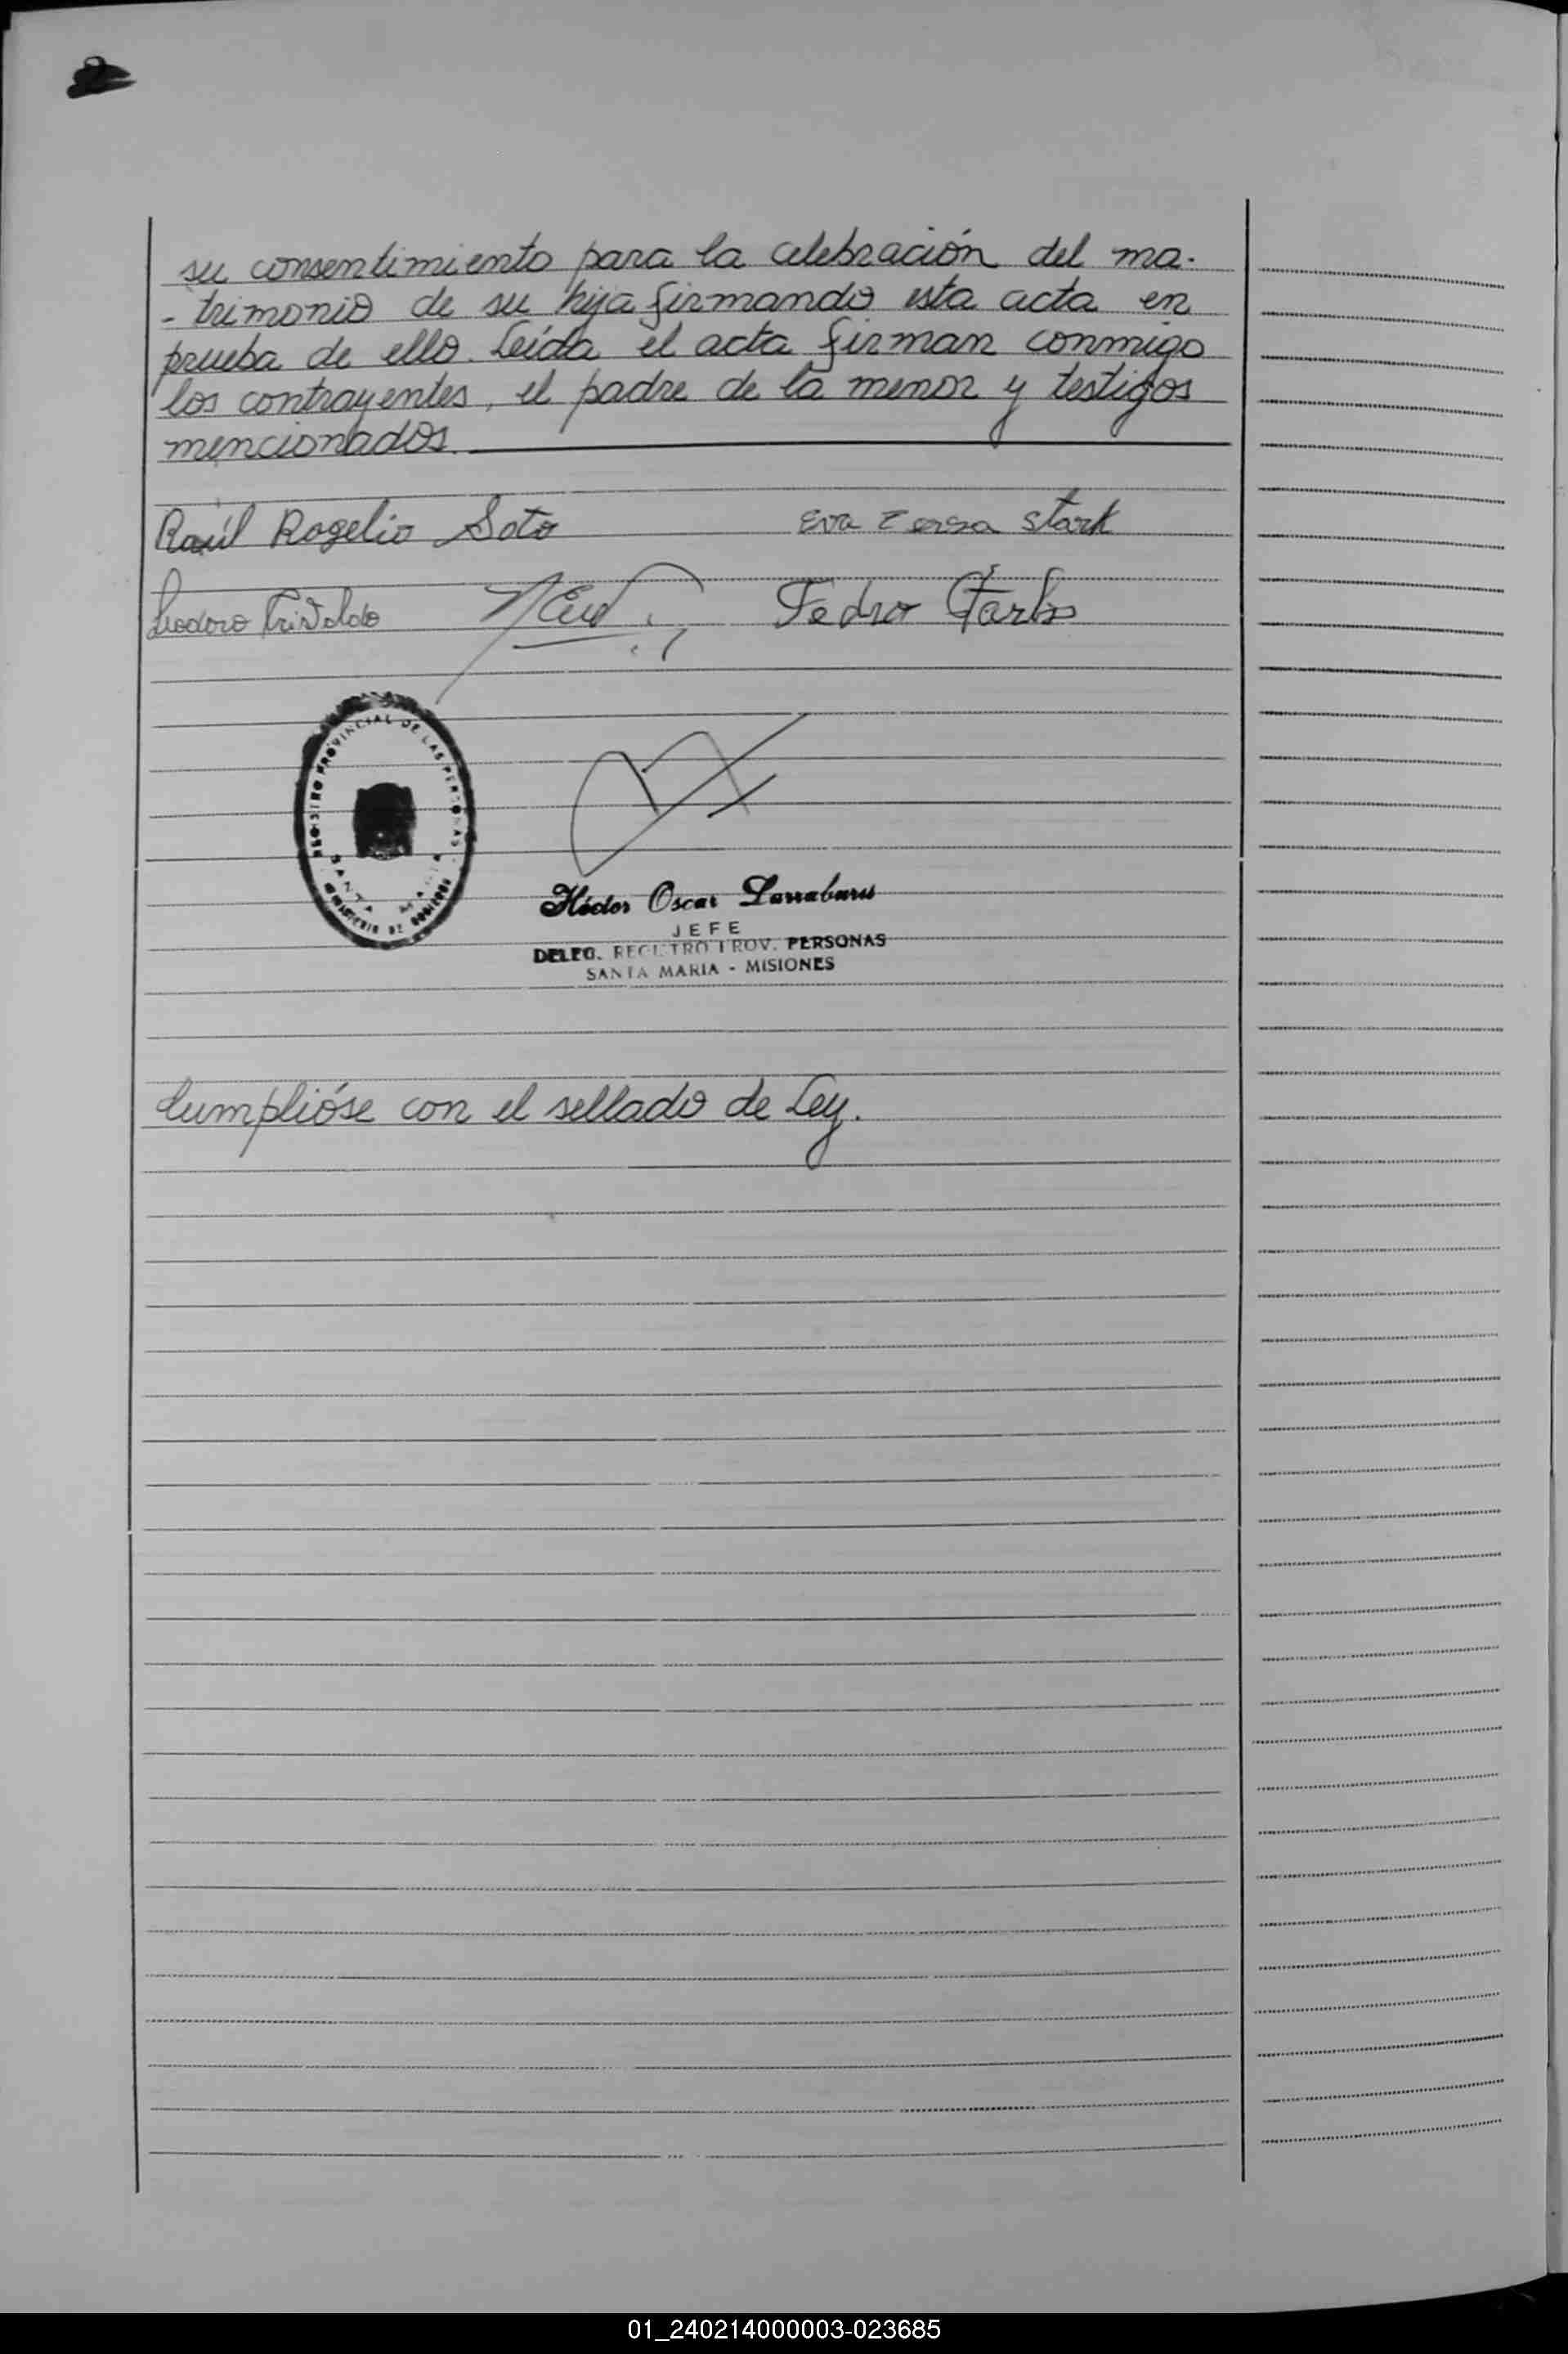 su consentimiento para la celebración del ma-
-trimonio de su hija firmando esta acta en
prueba de ello. Leída el acta firman conmigo
los contrayentes, el padre de la menor y testigos
mencionados.
Raúl Rogelio Soto Eva Teresa Stark
Teodoro Pedro
REGISTRO PROVINCIAL DE LAS PERSONAS
SANTA MARIA
MINISTERIO DE GOBIERNO
Héctor Oscar Larrabure
JEFE
DELEG. REGISTRO PROV. PERSONAS
SANTA MARIA - MISIONES
Cumplióse con el sellado de Ley.
01_240214000003-023685